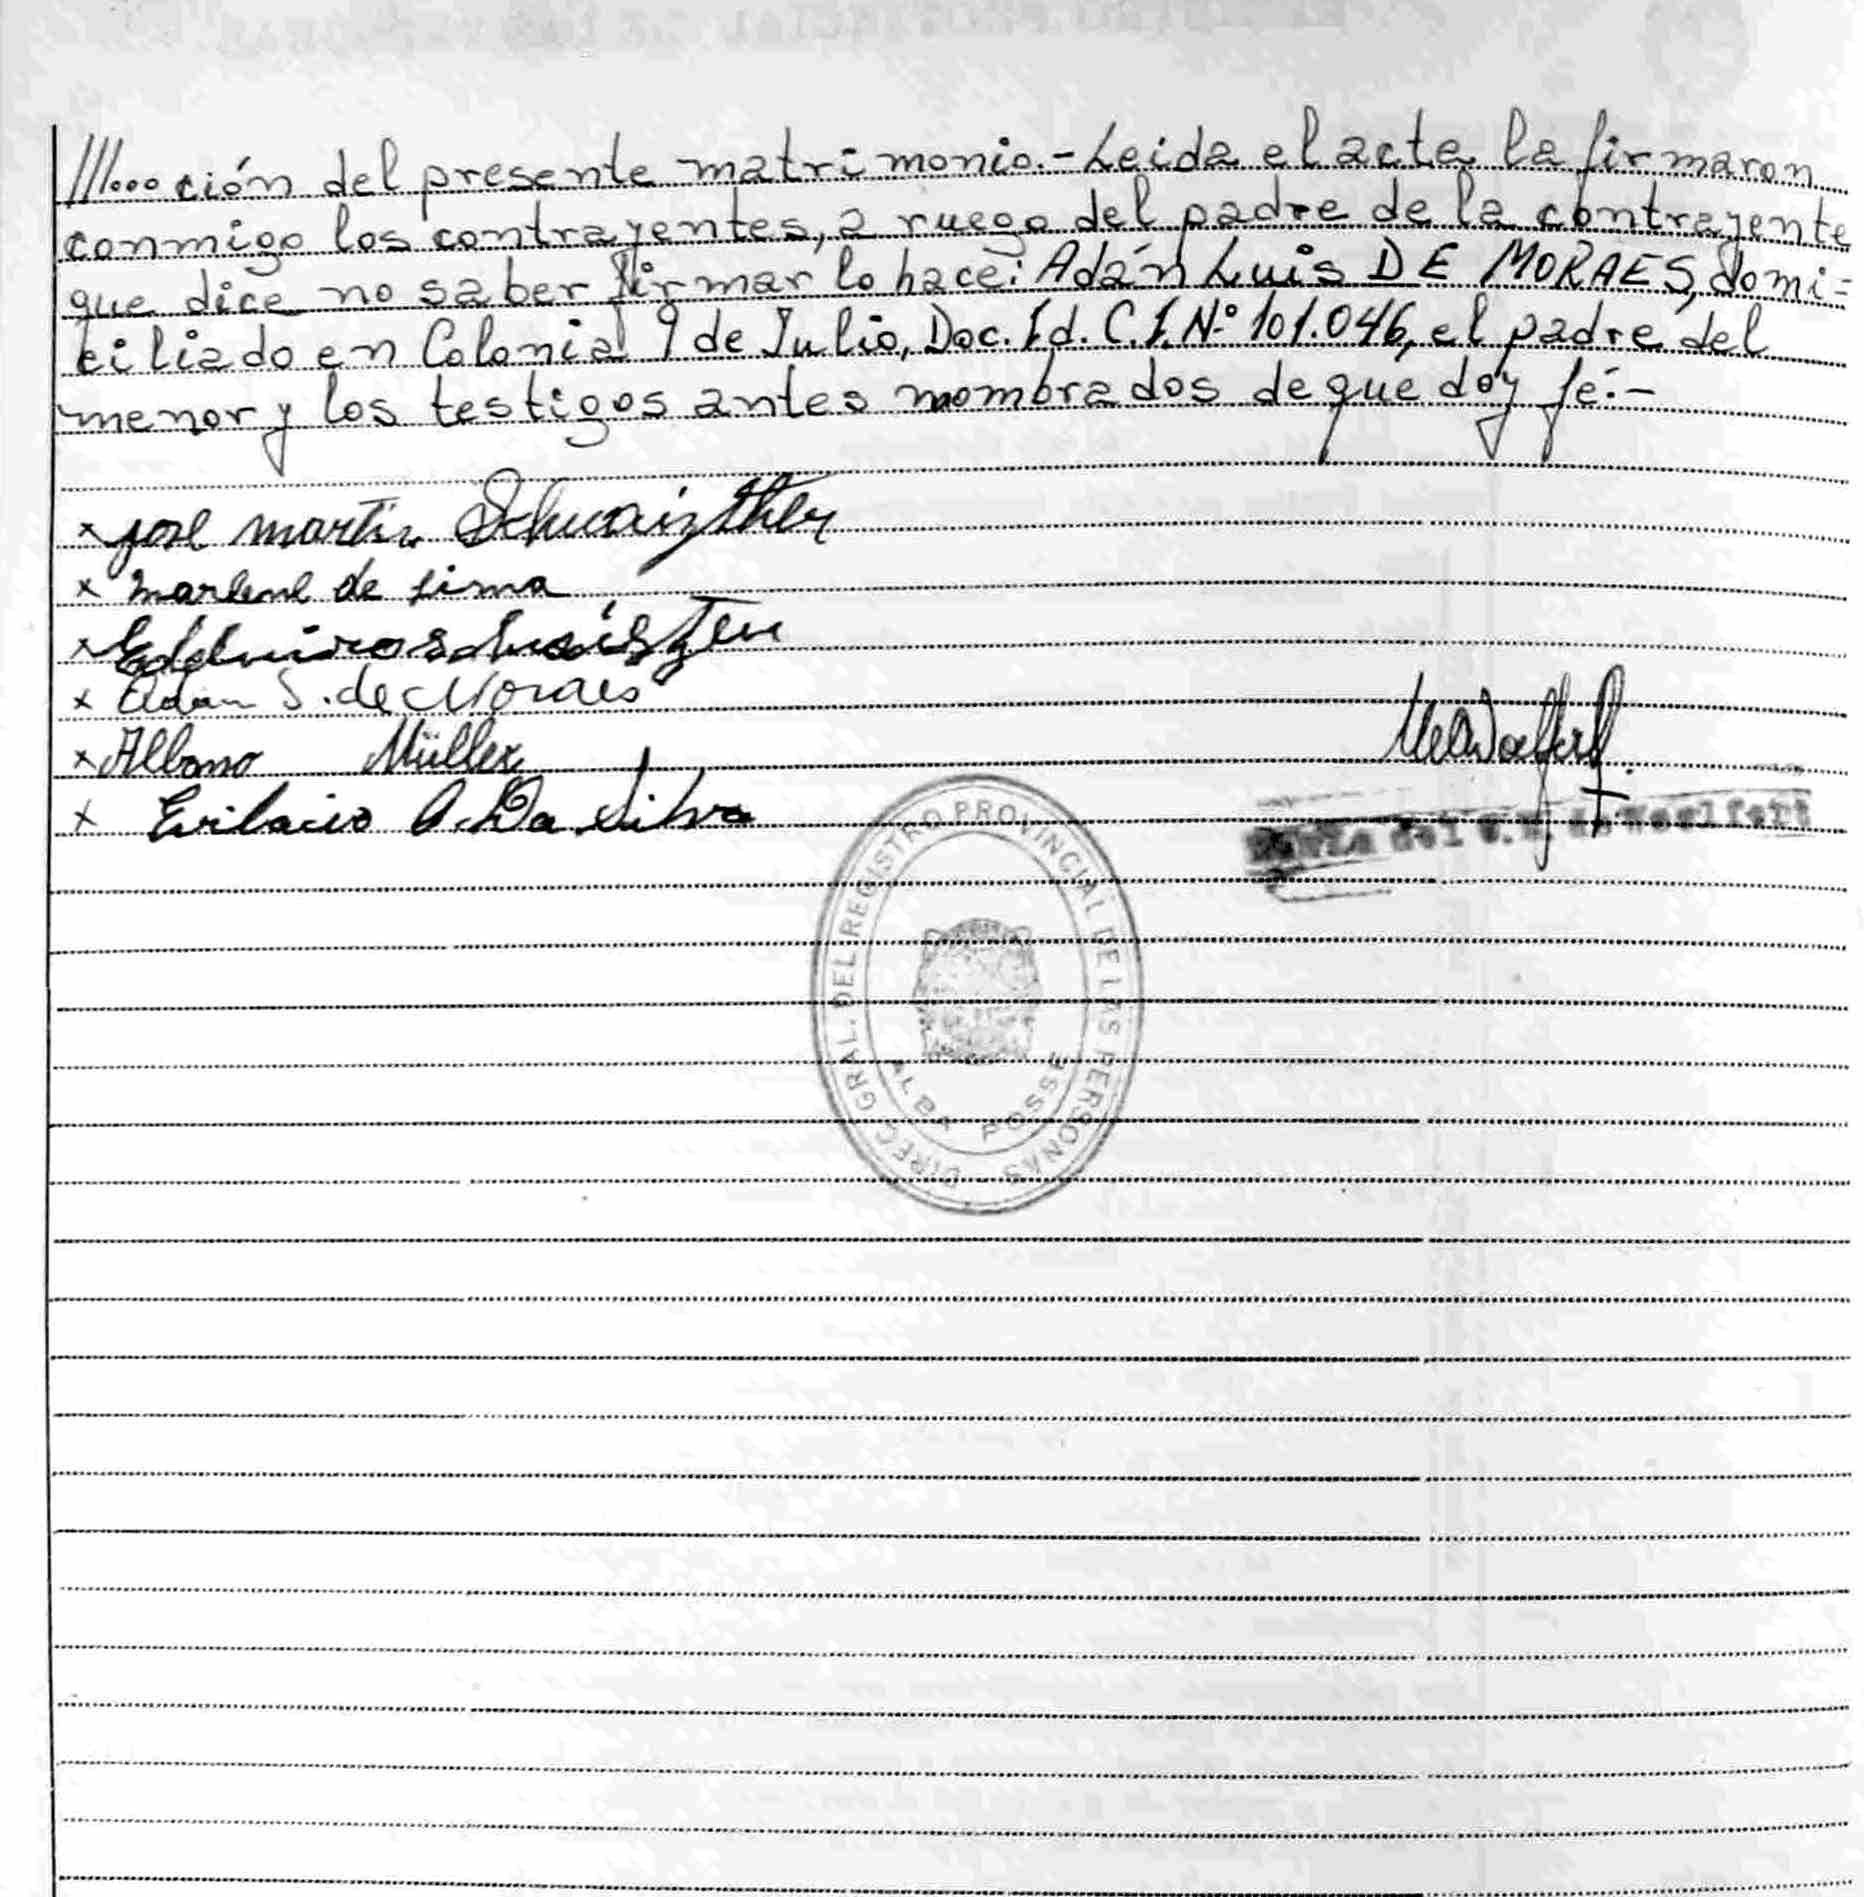 ///...ción del presente matrimonio.- Leida el acta la firmaron
conmigo los contrayentes, a ruego del padre de la contrayente
que dice no saber firmar lo hace: Adán Luis DE MORAES, domi=
ciliado en Colonia 9 de Julio, Doc. Id. C.I. Nº 101.046, el padre del
menor y los testigos antes nombrados de que doy fé:-
x jose martin
x marlene de lima
x
x Adan S. de Moraes
x Albano Müller
x A. Da Silva
del de Woelfert
DIREC. GRAL. DEL REGISTRO PROVINCIAL DE LAS PERSONAS
ALBA POSSE